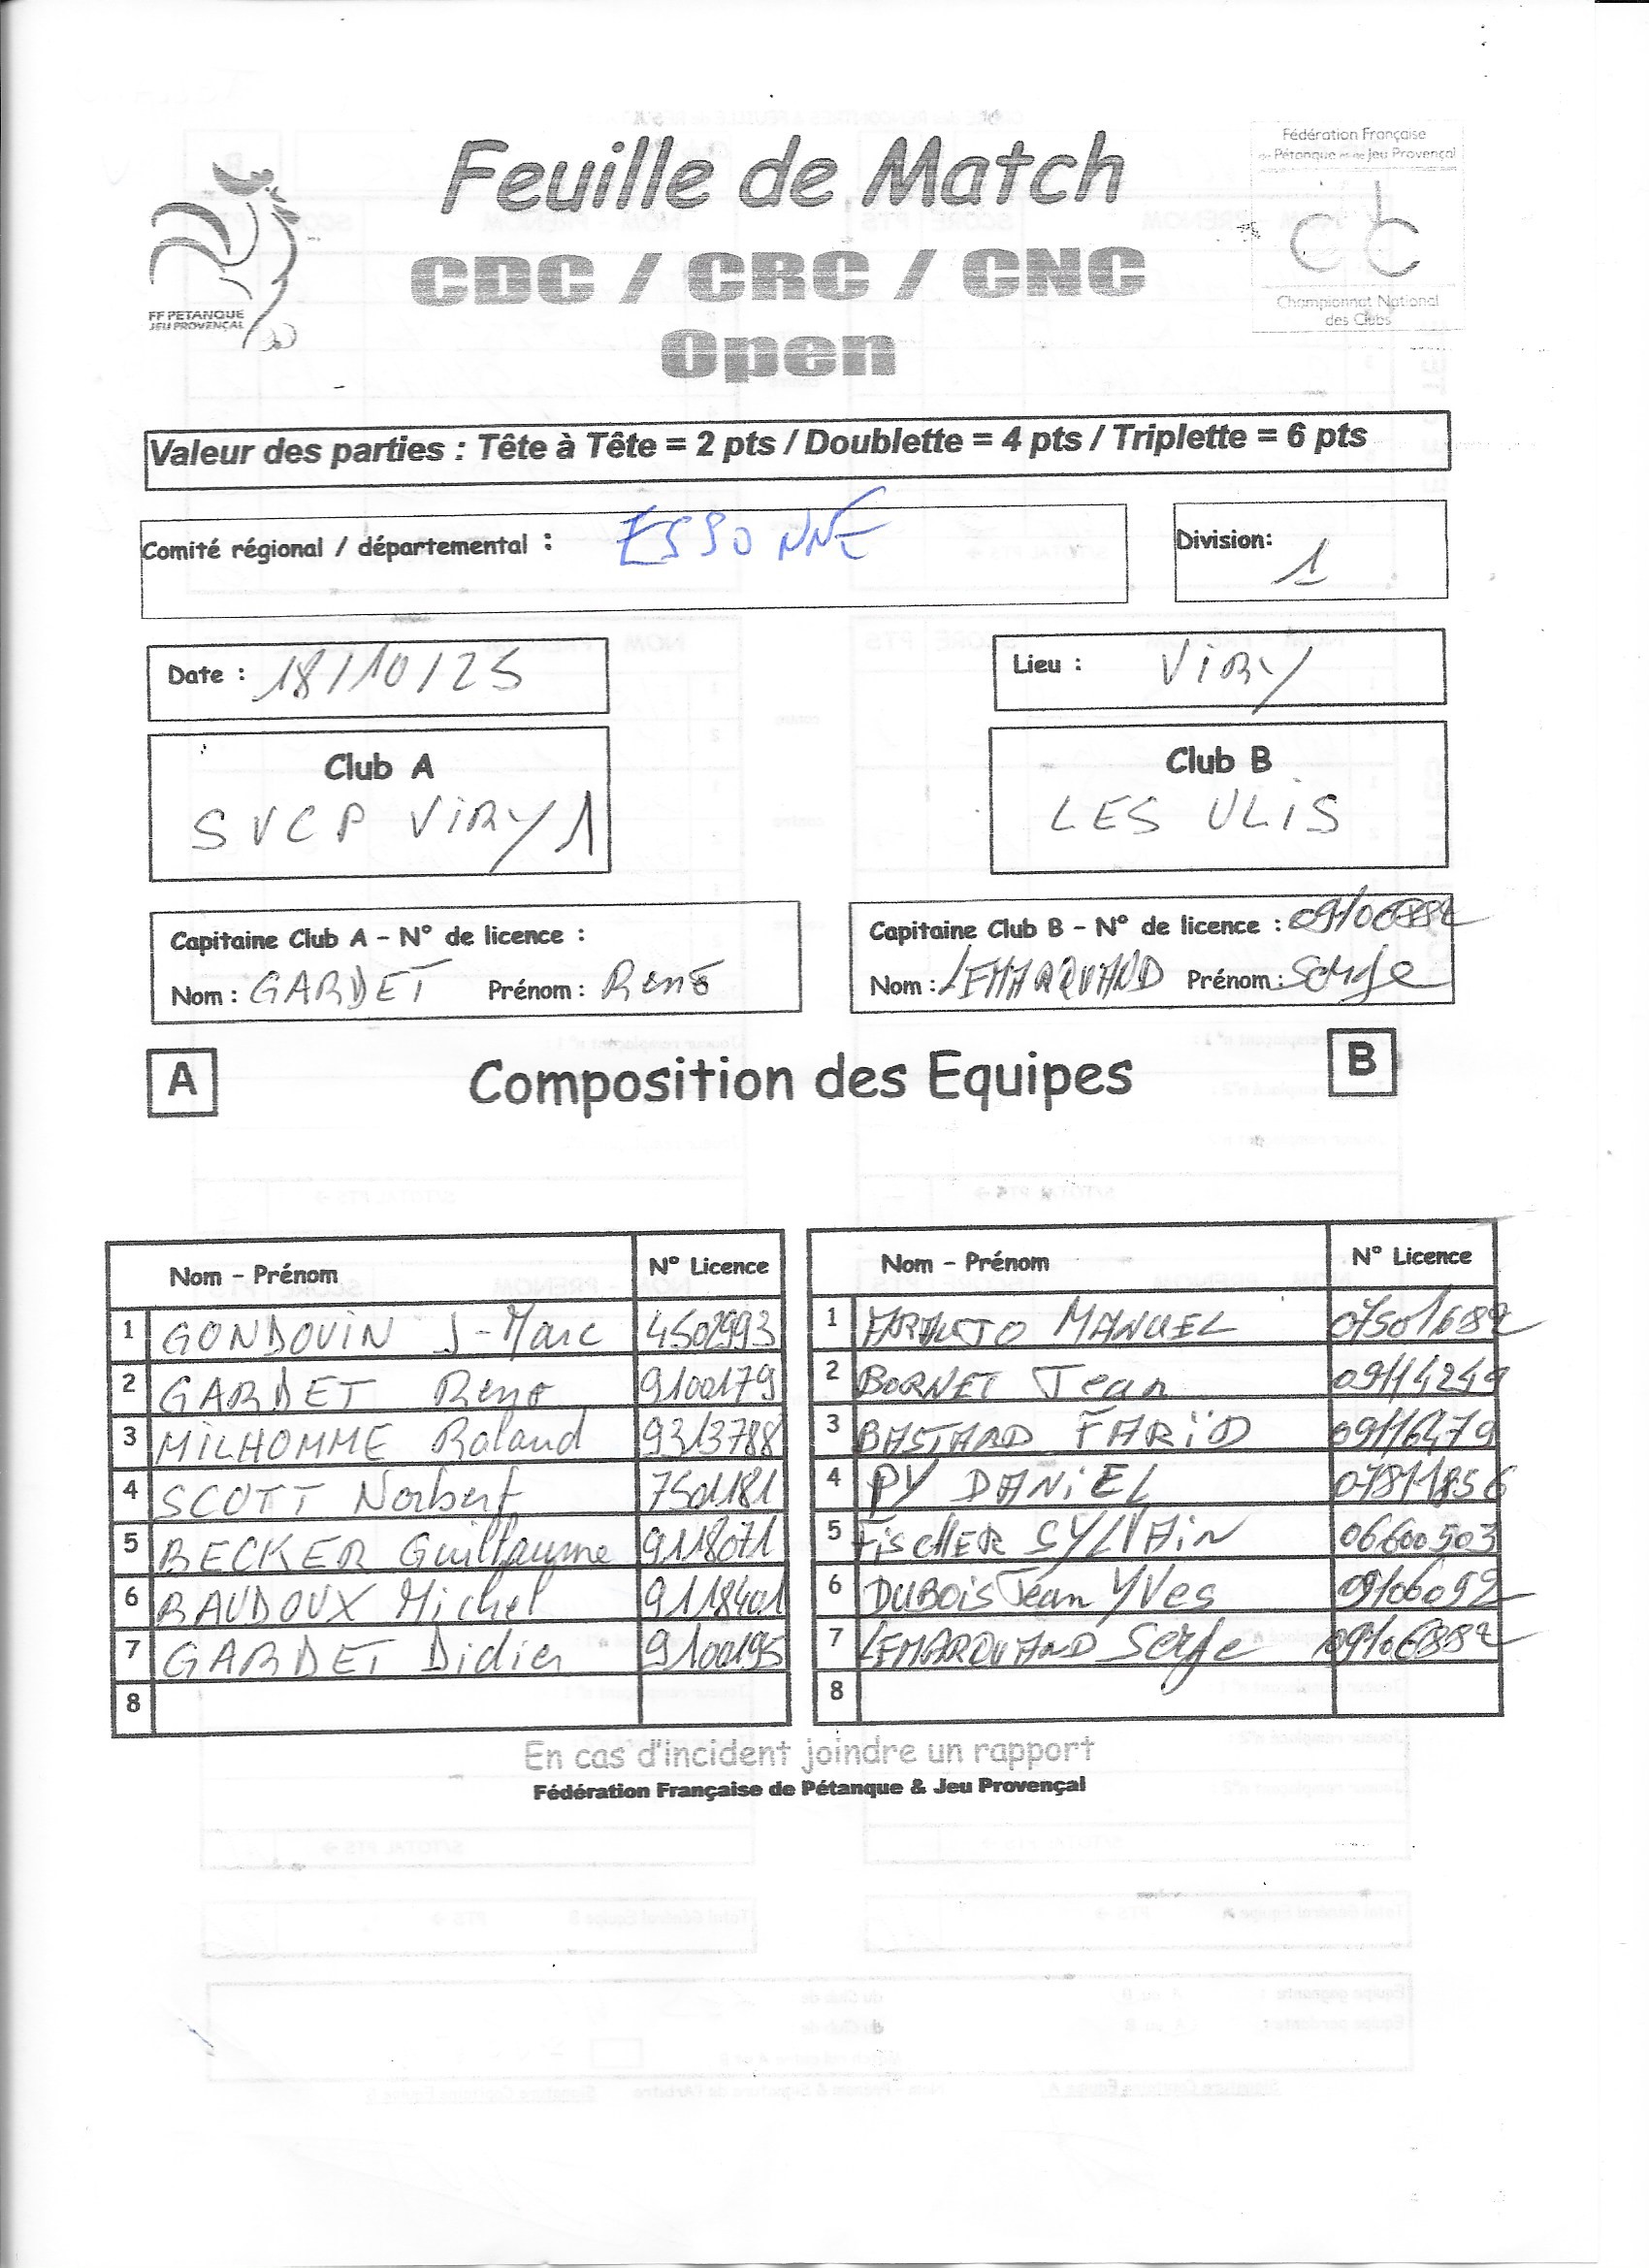 Feuille de Match
CDC / CRC / CNC
Open
FF PETANQUE
JEU PROVENÇAL
Fédération Française
de Pétanque et de Jeu Provençal
Championnat National
des Clubs
Valeur des parties : Tête à Tête = 2 pts / Doublette = 4 pts / Triplette = 6 pts
Comité régional / départemental : ESSONNE
Division: 1
Date : 18/10/25
Lieu : ViRY
Club A
SVCP ViRY 1
Club B
LES ULiS
Capitaine Club A - N° de licence :
Nom : GARDET Prénom : René
Capitaine Club B - N° de licence : 09106882
Nom : LEMARQUAND Prénom : Serge
A
Composition des Equipes
B
Nom - Prénom N° Licence
1 GONDOUIN J-Marc 4502993
2 GARDET René 9100179
3 MILHOMME Roland 9313788
4 SCOTT Norbert 7501181
5 BECKER Guillaume 9118071
6 BAUDOUX Michel 9118401
7 GARDET Didier 9100195
8
Nom - Prénom N° Licence
1 ARAUJO MANUEL 07501682
2 BORNET Jean 09114249
3 BASTARD FARÏD 09116479
4 PY DANiEL 07811856
5 FiscHER SYLVAiN 06600503
6 DUBOiS Jean YVes 09106092
7 LEMARQUAND Serge 09106882
8
En cas d'incident joindre un rapport
Fédération Française de Pétanque & Jeu Provençal